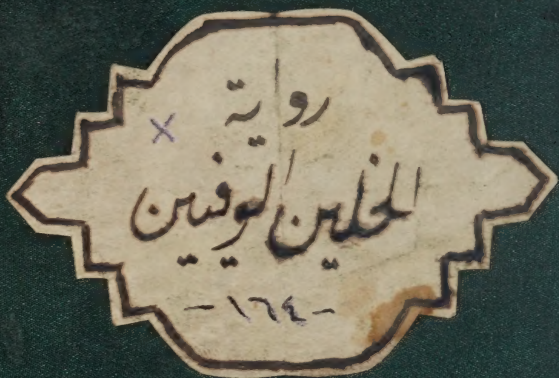 رواية
الخلين الوفيين
-١٦٤-